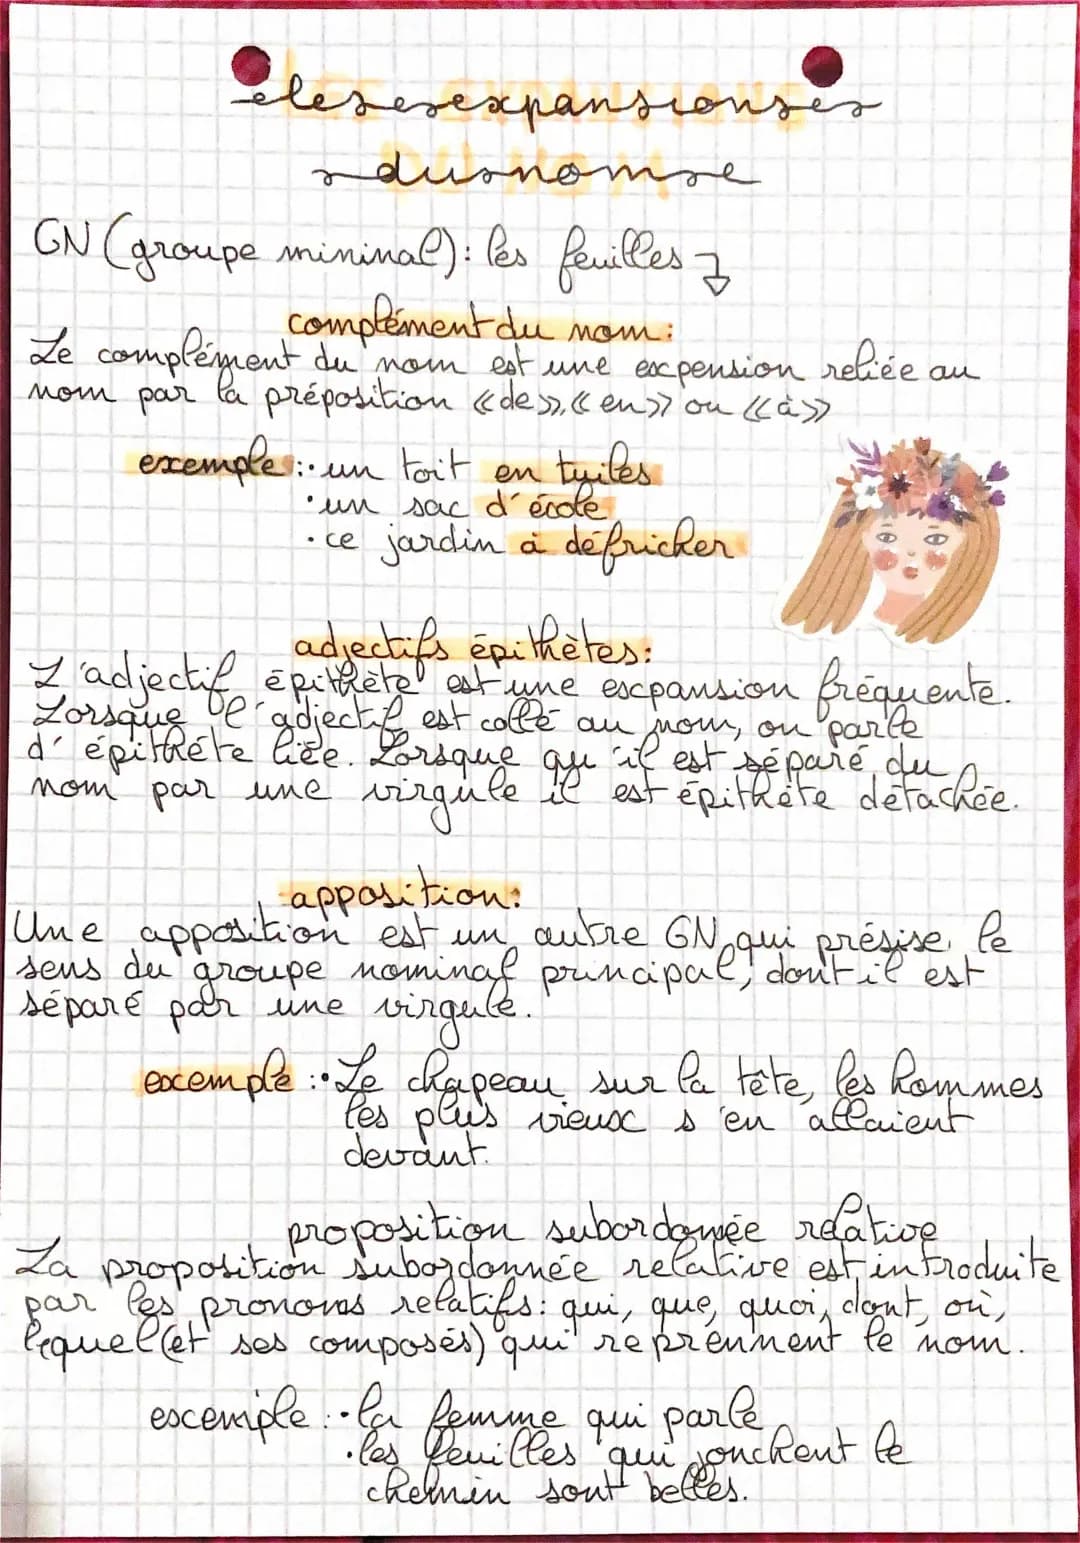 les expansions
du nom
GN (groupe mininal) : les feuilles
complément du nom :
Le complément du nom est une expension reliée au
nom par la préposition «de», «en» ou «à»
exemple : • un toit en tuiles
• un sac d'école
• ce jardin à défricher
adjectifs épithètes :
L'adjectif épithète est une expansion fréquente.
Lorsque l'adjectif est collé au nom, on parle
d'épithéte liée. Lorsque qu'il est séparé du
nom par une virgule il est épithète détachée.
apposition :
Une apposition est un autre GN qui présise le
sens du groupe nominal principal, dont il est
séparé par une virgule.
exemple : • Le chapeau sur la tête, les hommes
les plus vieux s'en allaient
devant.
proposition subordonnée relative
La proposition subordonnée relative est introduite
par les pronoms relatifs : qui, que, quoi, dont, où,
lequel (et ses composés) qui reprennent le nom.
exemple : • la femme qui parle
• les feuilles qui jonchent le
chemin sont belles.